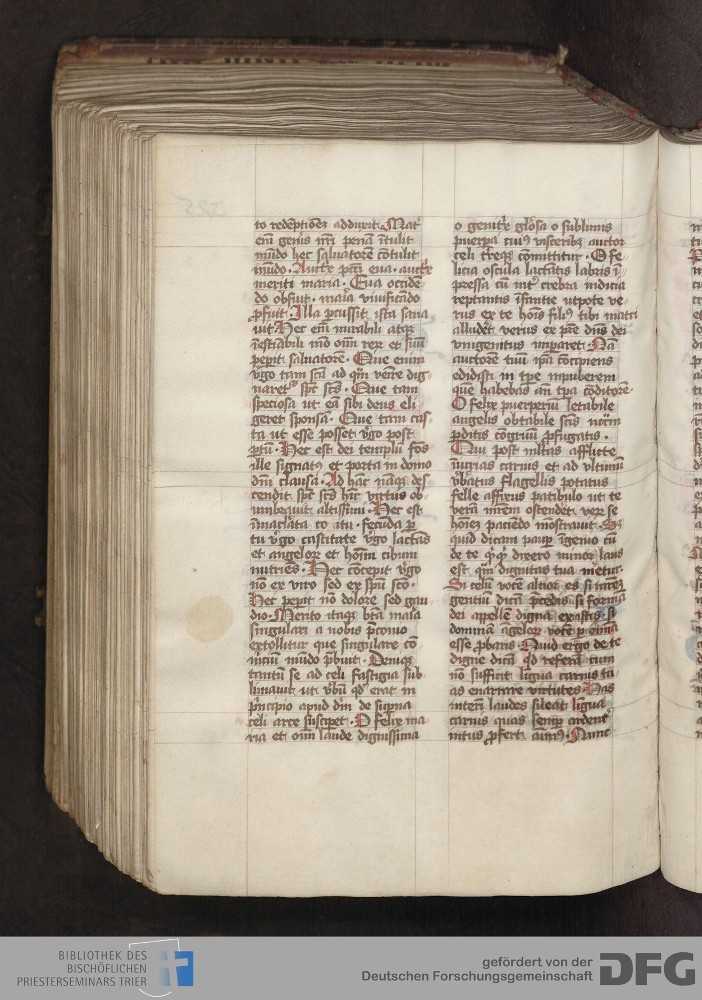 to redẽptionẽ adduxit. Mat̾
em̃ genis nr̃i penã ĩtulit
mũdo hec saluatorẽ cõtulit
mũdo. Auct̾x pcc̃i eua. auct̾x
meriti maria. Eua occidẽ-
do obfuit. maĩa viuificãdo
ꝓfuit. Illa ꝑcussit ista sana
uit Hec em̃ mirabili atqꝫ
ĩestiãbili mõ om̃ rex et suũ
peꝑit saluatorẽ. Que enim
vg̾o tam scã ad qm̃ venĩre dig-
naretᷣ spc̃ scs̃. Que tam
speciosa ut eã sibi deus eli
geret sponsã. Que tam cas-
ta ut esse posset vg̾o post
ptũ. Hec est dei templũ fõs
ille signatꝰ et porta in domo
dm̃ clausa. Ad hãc nãqꝫ des
cendit spc̃ scs̃ hãc virtus ob-
umbrauit altissimi. Hec est
ĩmac̾lata co atu. fecũda ꝑ
tu vg̾o castitate vg̾o lactãs
et angeloꝝ et hoĩm cibum
nutries. Hec cõcepit vg̾o
nõ ex viro sed ex spũ scõ.
Hec peꝑit nõ dolorẽ sed gau
dio. Merito itaqꝫ btã maĩa
singulari a nobis pᷓconio
extollitur que singulare cõ
m̃ciũ mũdo pᷓbuit. Deniqꝫ
tantũ se ad celi fastigia sub-
limauit ut vbũ qd̾ erat in
pᷓncipio apud dm̃ de suꝑna
celi arce suscipet. O felix ma
ria et om̃i laude dignissima
o genitᷓx gl̾osa o sublimis
puerpa cuiꝰ visceribꝫ auctor
celi t̾reqꝫ cõmittitur. O fe
licia oscula lactẽtis labris ĩ-
pressa cũ int̾ crebra indicia
reptantis ĩfantie utpote ve-
rus ex te hoĩs filiꝰ tibi matri
alludet̾ verus ex pr̃e dñs dei
vnigenitus imparet. Nã
auctorẽ tuũ ip̃a cõcipiens
edidisti in tpe inpuberem
quẽ habebas an̄ tpa cõditorẽ.
O felix puerperiũ letabile
angelis obtabile scĩs nccm̃
ꝑditis cõgruũ ꝓfugatis.
Qui post mltãs afflicte
iniurias carnis et ad vltimũ
vb̾atus flagellis potatus
felle affixus patibulo ut te
verã mr̃em ostendet̾ ver se
hoĩez paciẽdo mostrauit. Sꝫ
quid dicam pauꝑ ĩgenio cũ
de te qᷓcqᷓd dixero minor laus
est qm̃ dignitas tua meret̾.
Si celũ vocẽ altior es si mr̃ez
gentiũ dicã pᷓcedis. si formã
dei apellẽ digna existis. si
dominã ãgeloꝝ vocẽ ꝑ oĩma
esse ꝓbaris. Quid ergo de te
digne dicã qd̾ referã cum
nõ sufficit lingua carnis tu
as enarrare virtutes. Has
interi laudes sileat lingua
carnis quas semꝑ ardent̾
intus ꝓfert aĩmꝰ. Nunc